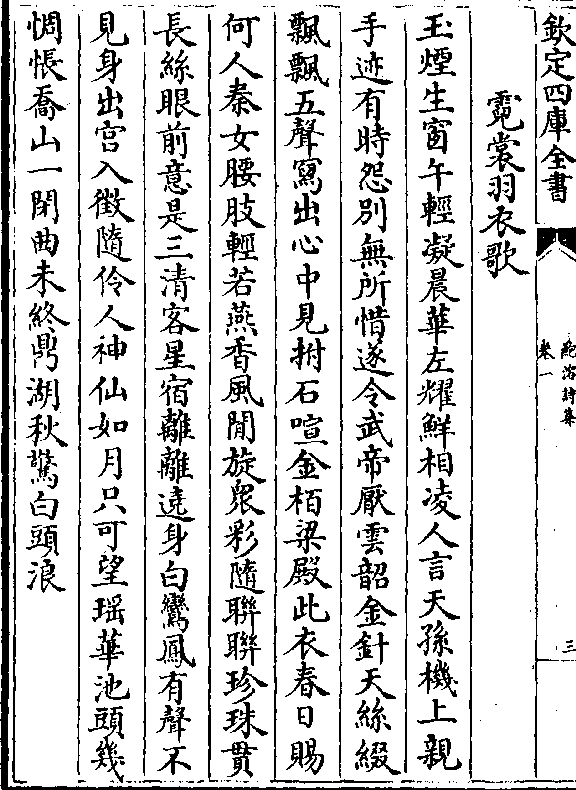 欽定四庫全書
鮑溶詩集
卷一
三
霓裳羽衣歌
玉煙生窗午輕凝晨華左耀鮮相凌人言天孫機上親
手迹有時怨別無所惜遂令武帝厭雲韶金針天絲綴
飄飄五聲寫出心中見拊石喧金栢梁殿此衣春日賜
何人秦女腰肢輕若燕香風閒旋衆彩隨聯聯珍珠貫
長絲眼前意是三清客星宿離離遶身白鸞鳳有聲不
見身出宫入徵隨伶人神仙如月只可望瑶華池頭幾
惆悵喬山一閉曲未終鼎湖秋驚白頭浪